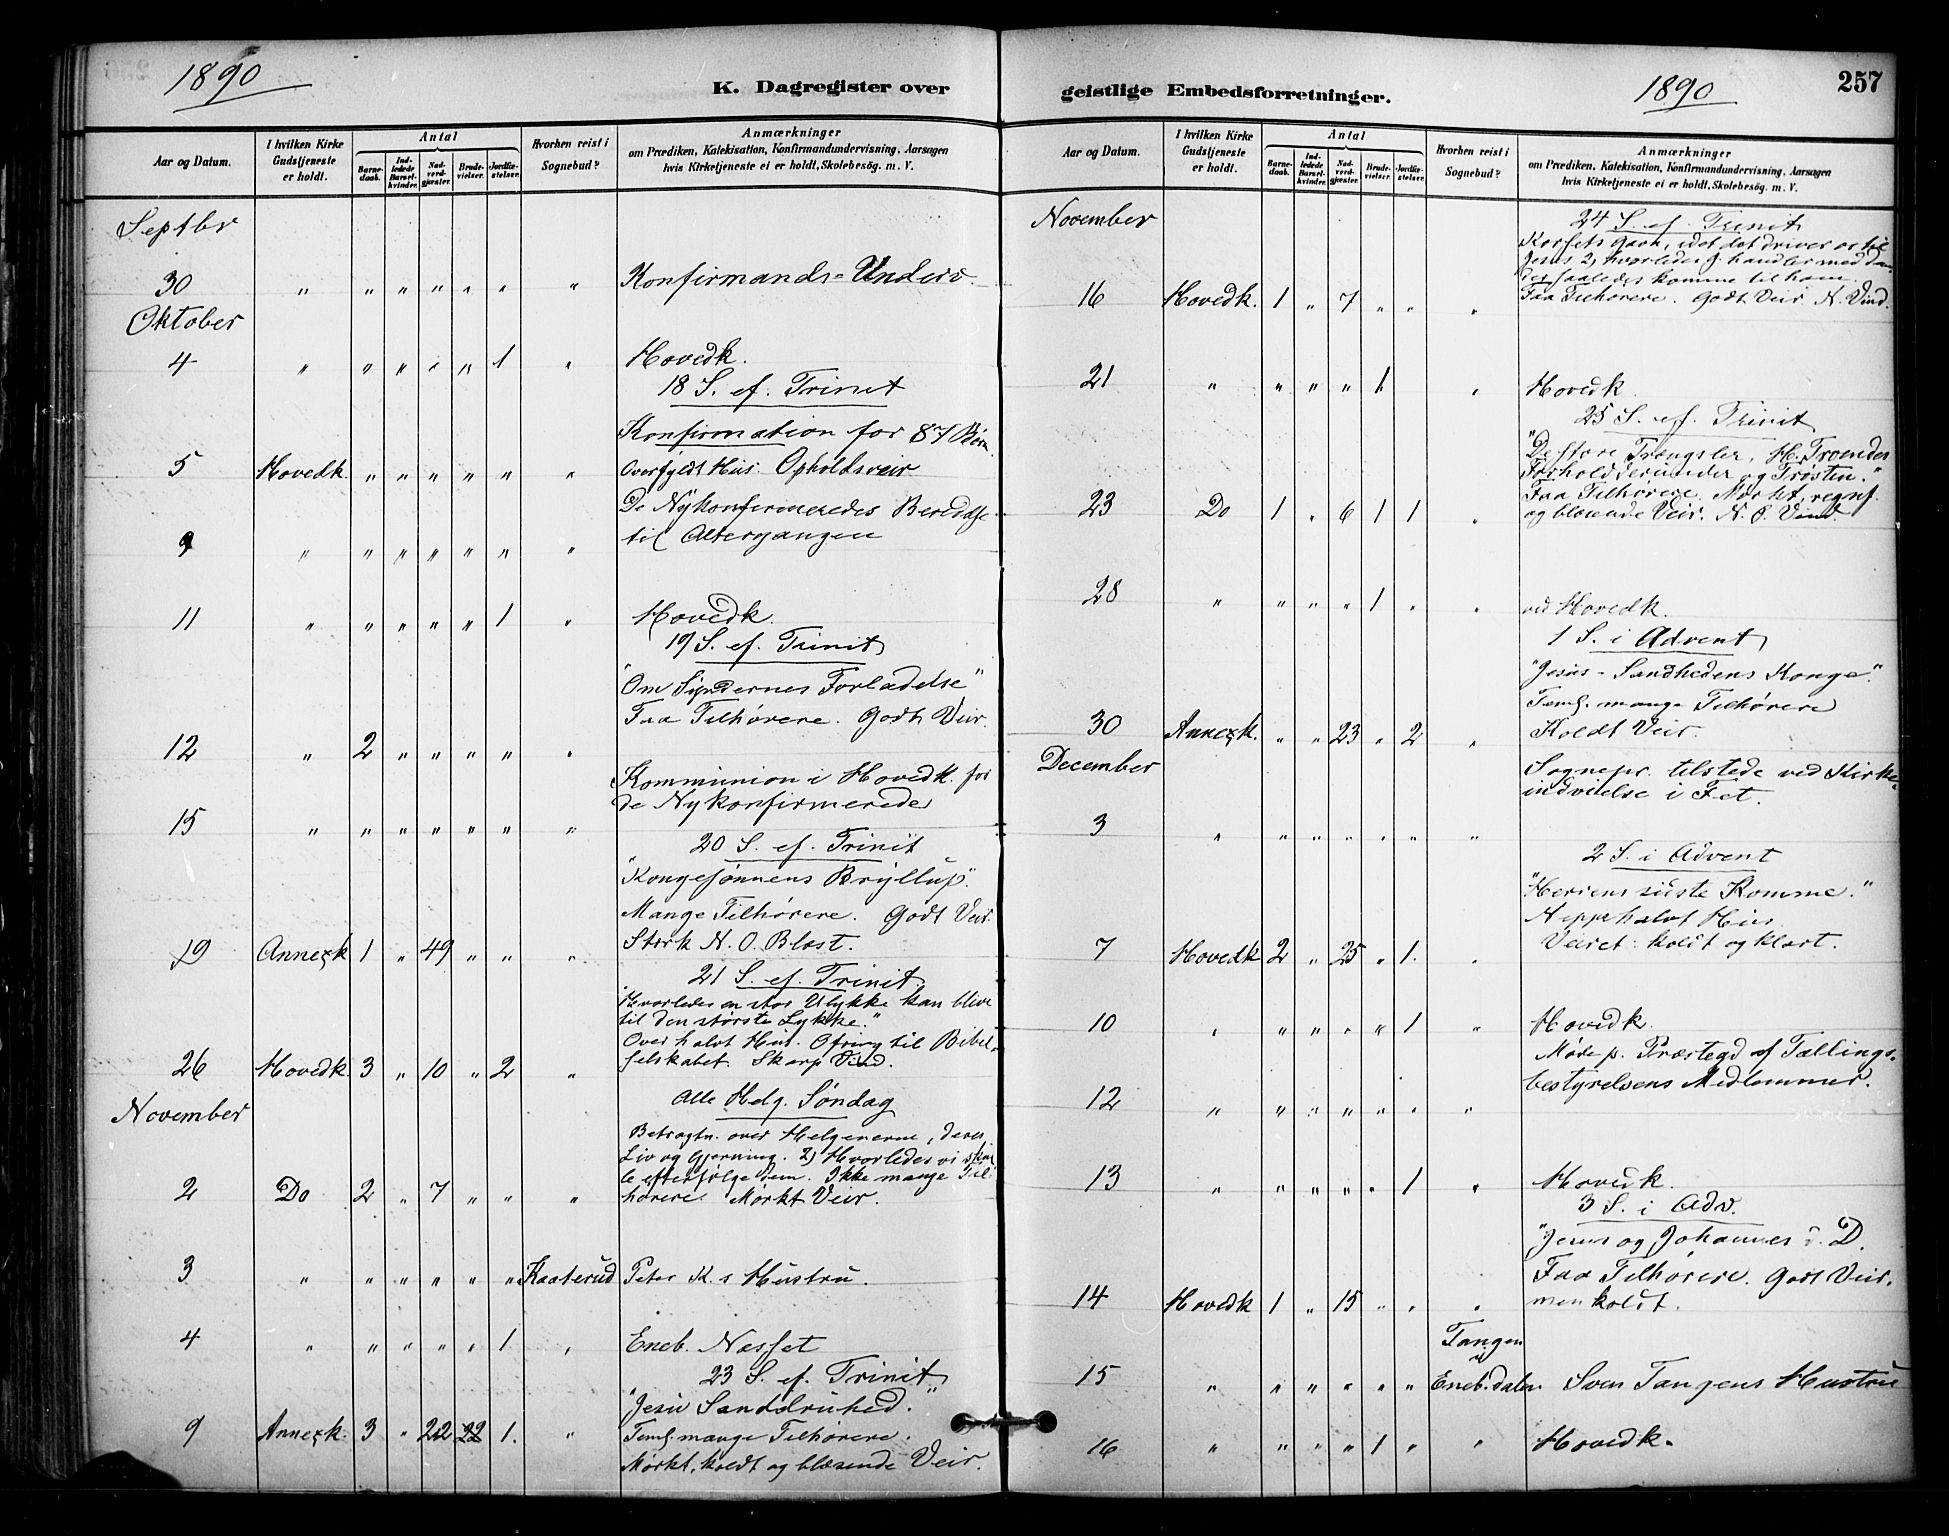 1890
K. Dagregister over
Aar og Datum.
I hvilken Kirke Gudstjeneste er holdt.
Antal
Barnedaab.
Indledede Barselkvinder.
Nadverdgjæster.
Brudevielser.
Jordfæstelser.
Hvorhen reist i Sognebud?
Anmærkninger
om Prædiken, Katekisation, Konfirmandundervisning, Aarsagen
hvis Kirketjeneste ei er holdt, Skolebesøg. m. V.
Septbr
30 " " " " " " " Konfirmands-Underv.
Oktober
4 " " " " " 1 " Hovedk.
18 S. ef. Trinit
Konfirmation for 87 Børn
5 Hovedk. " " " " " " Overfyldt Hus. Opholdsveir
De Nykonfirmeredes Beredelse
9 " " " " " " " til Altergangen
11 " " " " " 1 " Hovedk.
19 S. ef. Trinit
"Om Syndernes Forladelse"
Faa Tilhørere. Godt Veir.
12 " 2 " " " " "
Kommunion i Hovedk. for
de Nykonfirmerede
15 " " " " " " "
20 S. ef. Trinit
"Kongesønnens Bryllup".
Mange Tilhørere. Godt Veir.
19 Annexk 1 " 49 " " " Stærk N. O. Blæst.
21 S. ef. Trinit
"Hvorledes en stor Ulykke kan blive
til den største Lykke."
Over halvt Hus. Ofring til Bibel-
26 Hovedk. 3 " 10 " 2 " selskabet. Skarp Vind.
Alle Helg. Søndag
November
Betragtn. over Helgenerne, deres
Liv og Gjerning. 2) Hvorledes vi skul-
le efterfølge dem. Ikke mange Til-
2 Do 2 " 7 " " " hørere. Mørkt Veir.
3 " " " " " " Kaaterud Peter K.s Hustru.
4 " " " " " 1 " Eneb. Næsset
23 S. ef. Trinit
"Jesu Sanddruhed."
9 Annexk. 3 " 22 22 1. " Teml. mange Tilhørere.
Mørkt, koldt og blæsende Veir.
geistlige Embedsforretninger.
1890
257
Aar og Datum.
I hvilken Kirke Gudstjeneste er holdt.
Antal
Barnedaab.
Indledede Barselkvinder.
Nadverdgjæster.
Brudevielser.
Jordfæstelser.
Hvorhen reist i Sognebud?
Anmærkninger
om Prædiken, Katekisation, Konfirmandundervisning, Aarsagen
hvis Kirketjeneste ei er holdt, Skolebesøg. m. V.
November
24 S. ef. Trinit
Korsets Gavn, idet det driver os til
Jesus 2) hvorledes J. handler med dem
der saaledes komme til ham
16 Hovedk. 1 " 7 " " " Faa Tilhørere. Godt Veir N. Vind.
21 " " " " 1 " Hovedk.
25 S. ef. Trinit
"De store Trængsler, Troendes
Forhold derunder og Trøsten."
Faa Tilhørere. Mørkt, regnf.
23 Do 1 " 6 1 1 " og blæsende Veir. N. O. Vind.
28 " " " " 1 " " ved Hovedk.
1 S. i Advent
"Jesus - Sandhedens Konge".
Teml. mange Tilhørere
30 Annexk. " " 23 " 2 " Koldt Veir.
December
Sognepr. tilstede ved Kirke-
indvielse i Fet.
3 " " " " " " "
2 S. i Advent
"Herrens sidste Komme."
Neppe halvt Hus
7 Hovedk 2 " 25 " 1. " Veiret: koldt og klart.
10 " " " " " 1 " Hovedk.
Møde p. Præstegd af Tællings-
bestyrelsens Medlemmer.
12 " " " " " " "
13 " " " " " 1 " Hovedk.
3 S. i Adv.
"Jesus og Johannes d. D.
Faa Tilhørere. Godt Veir,
14 Hovedk 1 " 15 " " " men koldt.
Tangen
15 " " " " " " Eneb.dalen Sven Tangens Hustru
16 " " " " 1 " " Hovedk.